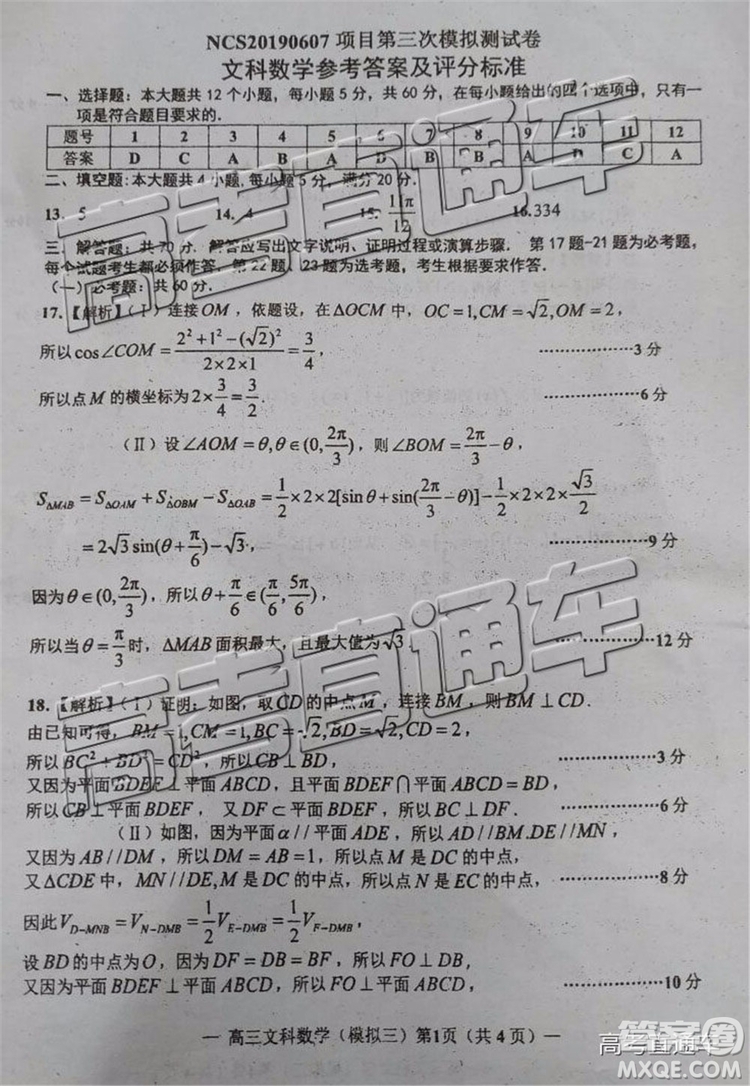 NCS20190607 项目第三次模拟测试卷
文科数学参考答案及评分标准
一、选择题：本大题共 12 个小题，每小题 5 分，共 60 分，在每小题给出的四个选项中，只有一
项是符合题目要求的．
题号 1 2 3 4 5 6 7 8 9 10 11 12
答案 D C A B A B A B A D C A
二、填空题:本大题共 4 小题,每小题 5 分，满分 20 分．
13．5 14．4 15．11π/12 16.334
三．解答题：共 70 分．解答应写出文字说明、证明过程或演算步骤． 第 17题-21 题为必考题，
每个试题考生都必须作答．第 22题、23题为选考题，考生根据要求作答．
（一）必考题：共 60 分．
17.【解析】(Ⅰ) 连接OM ，依题设，在ΔOCM 中， OC=1,CM=√2,OM=2，
所以 cos∠COM = (2²+1²−(√2)²)/(2×2×1) = 3/4， ··············3 分
所以点 M 的横坐标为 2×3/4=3/2． ··············6 分
(Ⅱ) 设∠AOM=θ,θ∈(0,2π/3)，则∠BOM=2π/3−θ，
S_ΔMAB=S_ΔOAM+S_ΔOBM−S_ΔOAB=1/2×2×2[sinθ+sin(2π/3−θ)]−1/2×2×2×√3/2
=2√3sin(θ+π/6)−√3， ··············9 分
因为θ∈(0,2π/3)，所以θ+π/6∈(π/6,5π/6)，
所以当θ=π/3时，ΔMAB 面积最大，且最大值为√3． ··············12 分
18.【解析】(Ⅰ) 证明：如图，取CD的中点M ，连接BM ，则BM⊥CD．
由已知可得，BM=1,CM=1,BC=√2,BD=√2,CD=2，
所以BC²+BD²=CD²，所以CB⊥BD， ··············3 分
又因为平面BDEF⊥平面ABCD，且平面BDEF∩平面ABCD=BD，
所以CB⊥平面BDEF， 又DF⊂平面BDEF，所以BC⊥DF． ··············6 分
(Ⅱ) 如图，因为平面α//平面ADE，所以AD//BM.DE//MN，
又因为AB//DM，所以DM=AB=1，所以点M是DC的中点，
又ΔCDE中，MN//DE,M是DC的中点，所以N是EC的中点， ··············8 分
因此V_D−MNB=V_N−DMB=1/2V_E−DMB=1/2V_F−DMB，
设BD的中点为O，因为DF=DB=BF，所以FO⊥DB，
又因为平面BDEF⊥平面ABCD，所以FO⊥平面ABCD， ··············10 分
— 高三文科数学（模拟三）第1页（共 4 页）—
高考直通车
高考直通车
高考直通车
答案圈
MXQE.COM